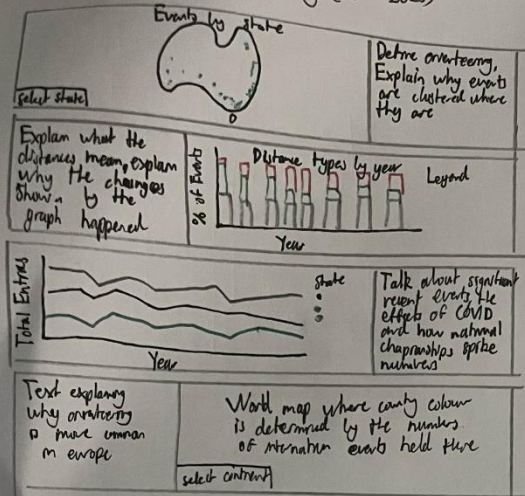 2023)
Events by state
select state
Define orienteering,
Explain why events
are clustered where
they are
Explain what the
distances mean, explain
why the changes
shown by the
graph happened
Distance types by year
% of Events
Year
Legend
Total Entries
Year
State
Talk about significant
recent events the
effects of COVID
and how national
championships spike
numbers
Text explaining
why orienteering
is more common
in europe
World map where county colour
is determined by the numbers
of internation events held there
select continent